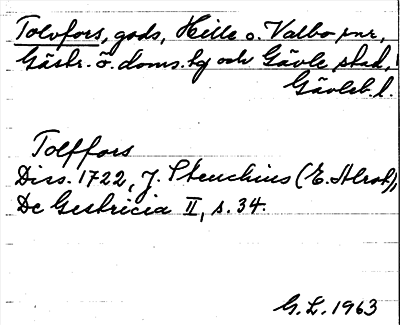 Tolvfors, gods, Hille o. Valbo snr,
Gästr. ö. doms.hg och Gävle stad,
Gävleb. l.
Tolffors
Diss. 1722, J. Stenchius (E. Alroth),
De Gestricia II, s. 34.
G. L. 1963